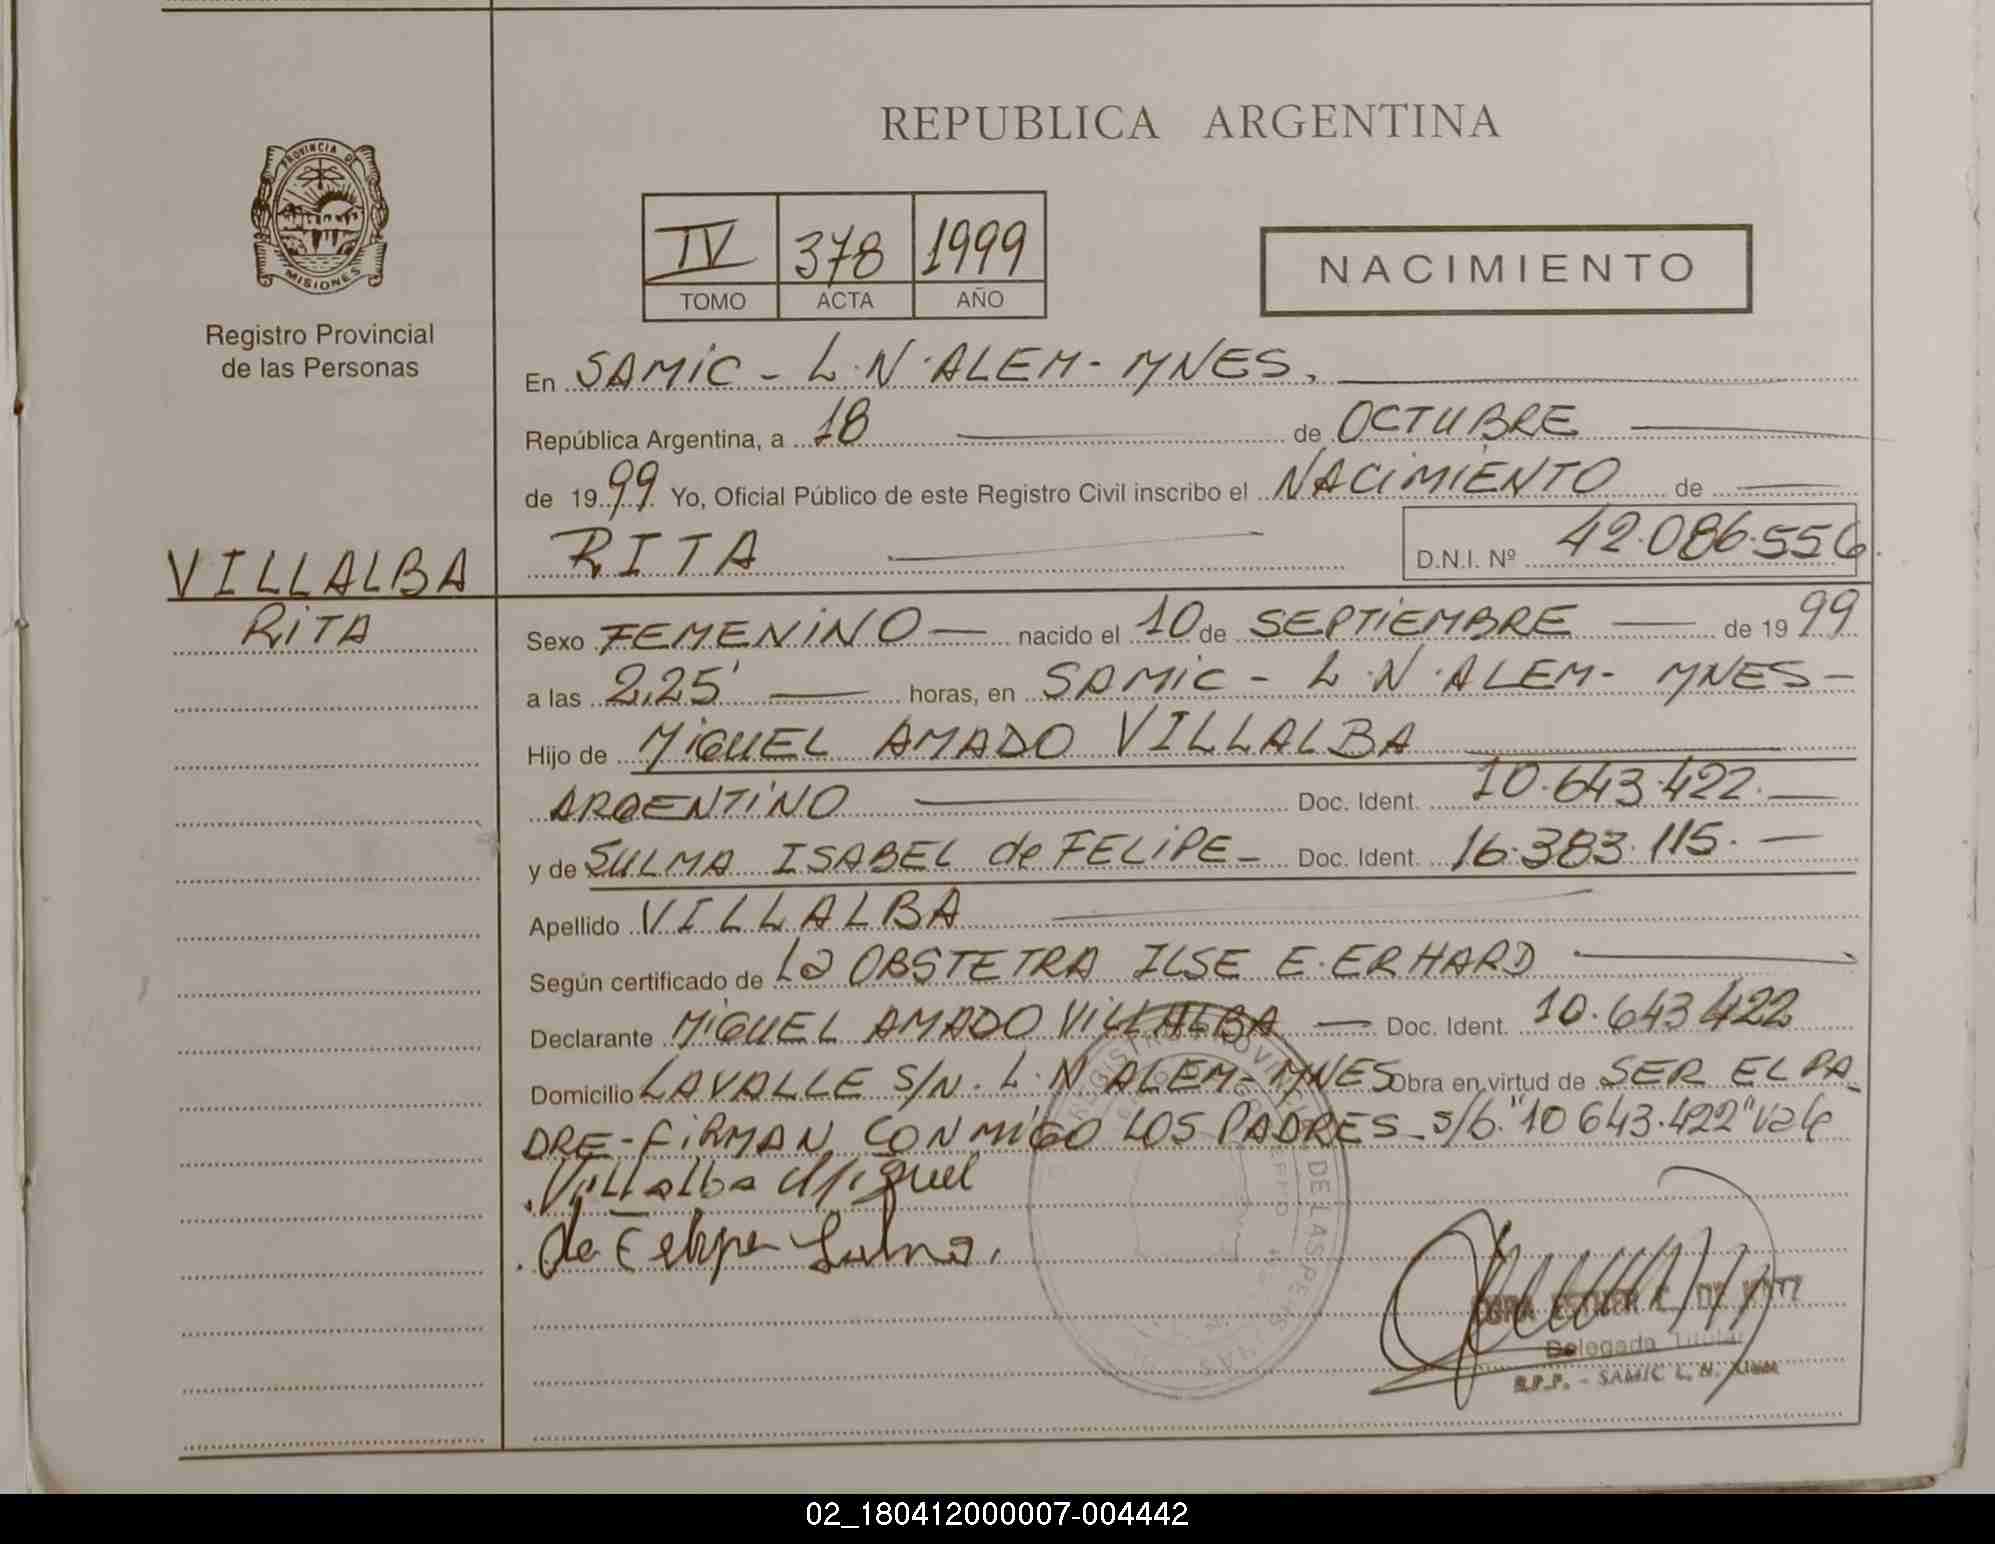 REPUBLICA ARGENTINA
PROVINCIA DE
MISIONES
IV 378 1999
TOMO ACTA AÑO
NACIMIENTO
Registro Provincial
de las Personas
En SAMiC - L.N.ALEM- MNES.
República Argentina, a 18 de OCTUBRE
de 1999 Yo, Oficial Público de este Registro Civil inscribo el NACiMiENTO de
RITA D.N.I. Nº 42.086.556
VILLALBA
RiTA
Sexo FEMENiNO nacido el 10 de SEPTiEMBRE de 1999
a las 2,25' horas, en SAMiC - L.N.ALEM- MNES-
Hijo de MiGUEL AMADO VILLALBA
ARGENTiNO Doc. Ident. 10.643.422.
y de SULMA ISABEL de FELiPE- Doc. Ident. 16.383.115.
Apellido VILLALBA
Según certificado de La OBSTETRA ILSE E. ERHARD
Declarante MiGUEL AMADO ViLLALBA Doc. Ident. 10.643 422
Domicilio LAVALLE S/N. L.N ALEM- MNES Obra en virtud de SER EL PA-
DRE-FiRMAN CONMiGO LOS PADRES- s/b."10 643.422"vale
Villalba Miguel
de Felipe Sulma.
Delegada Titular
R.P.P. - SAMIC L. N. ALEM
02_180412000007-004442